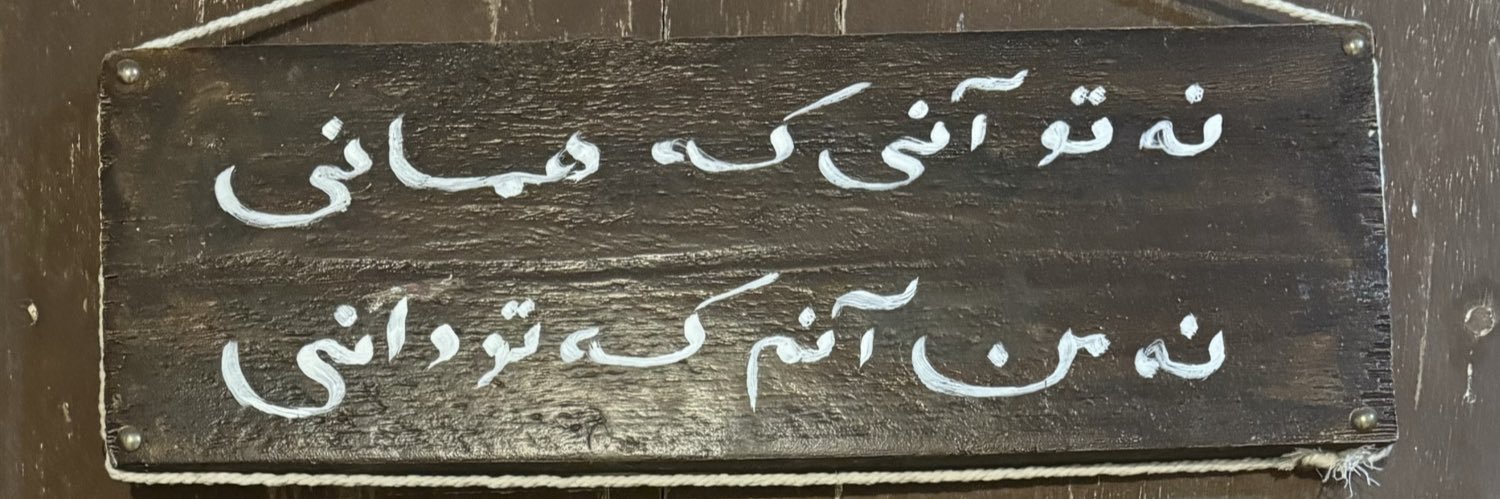 نه تو آنی که همانی
نه من آنم که تو دانی